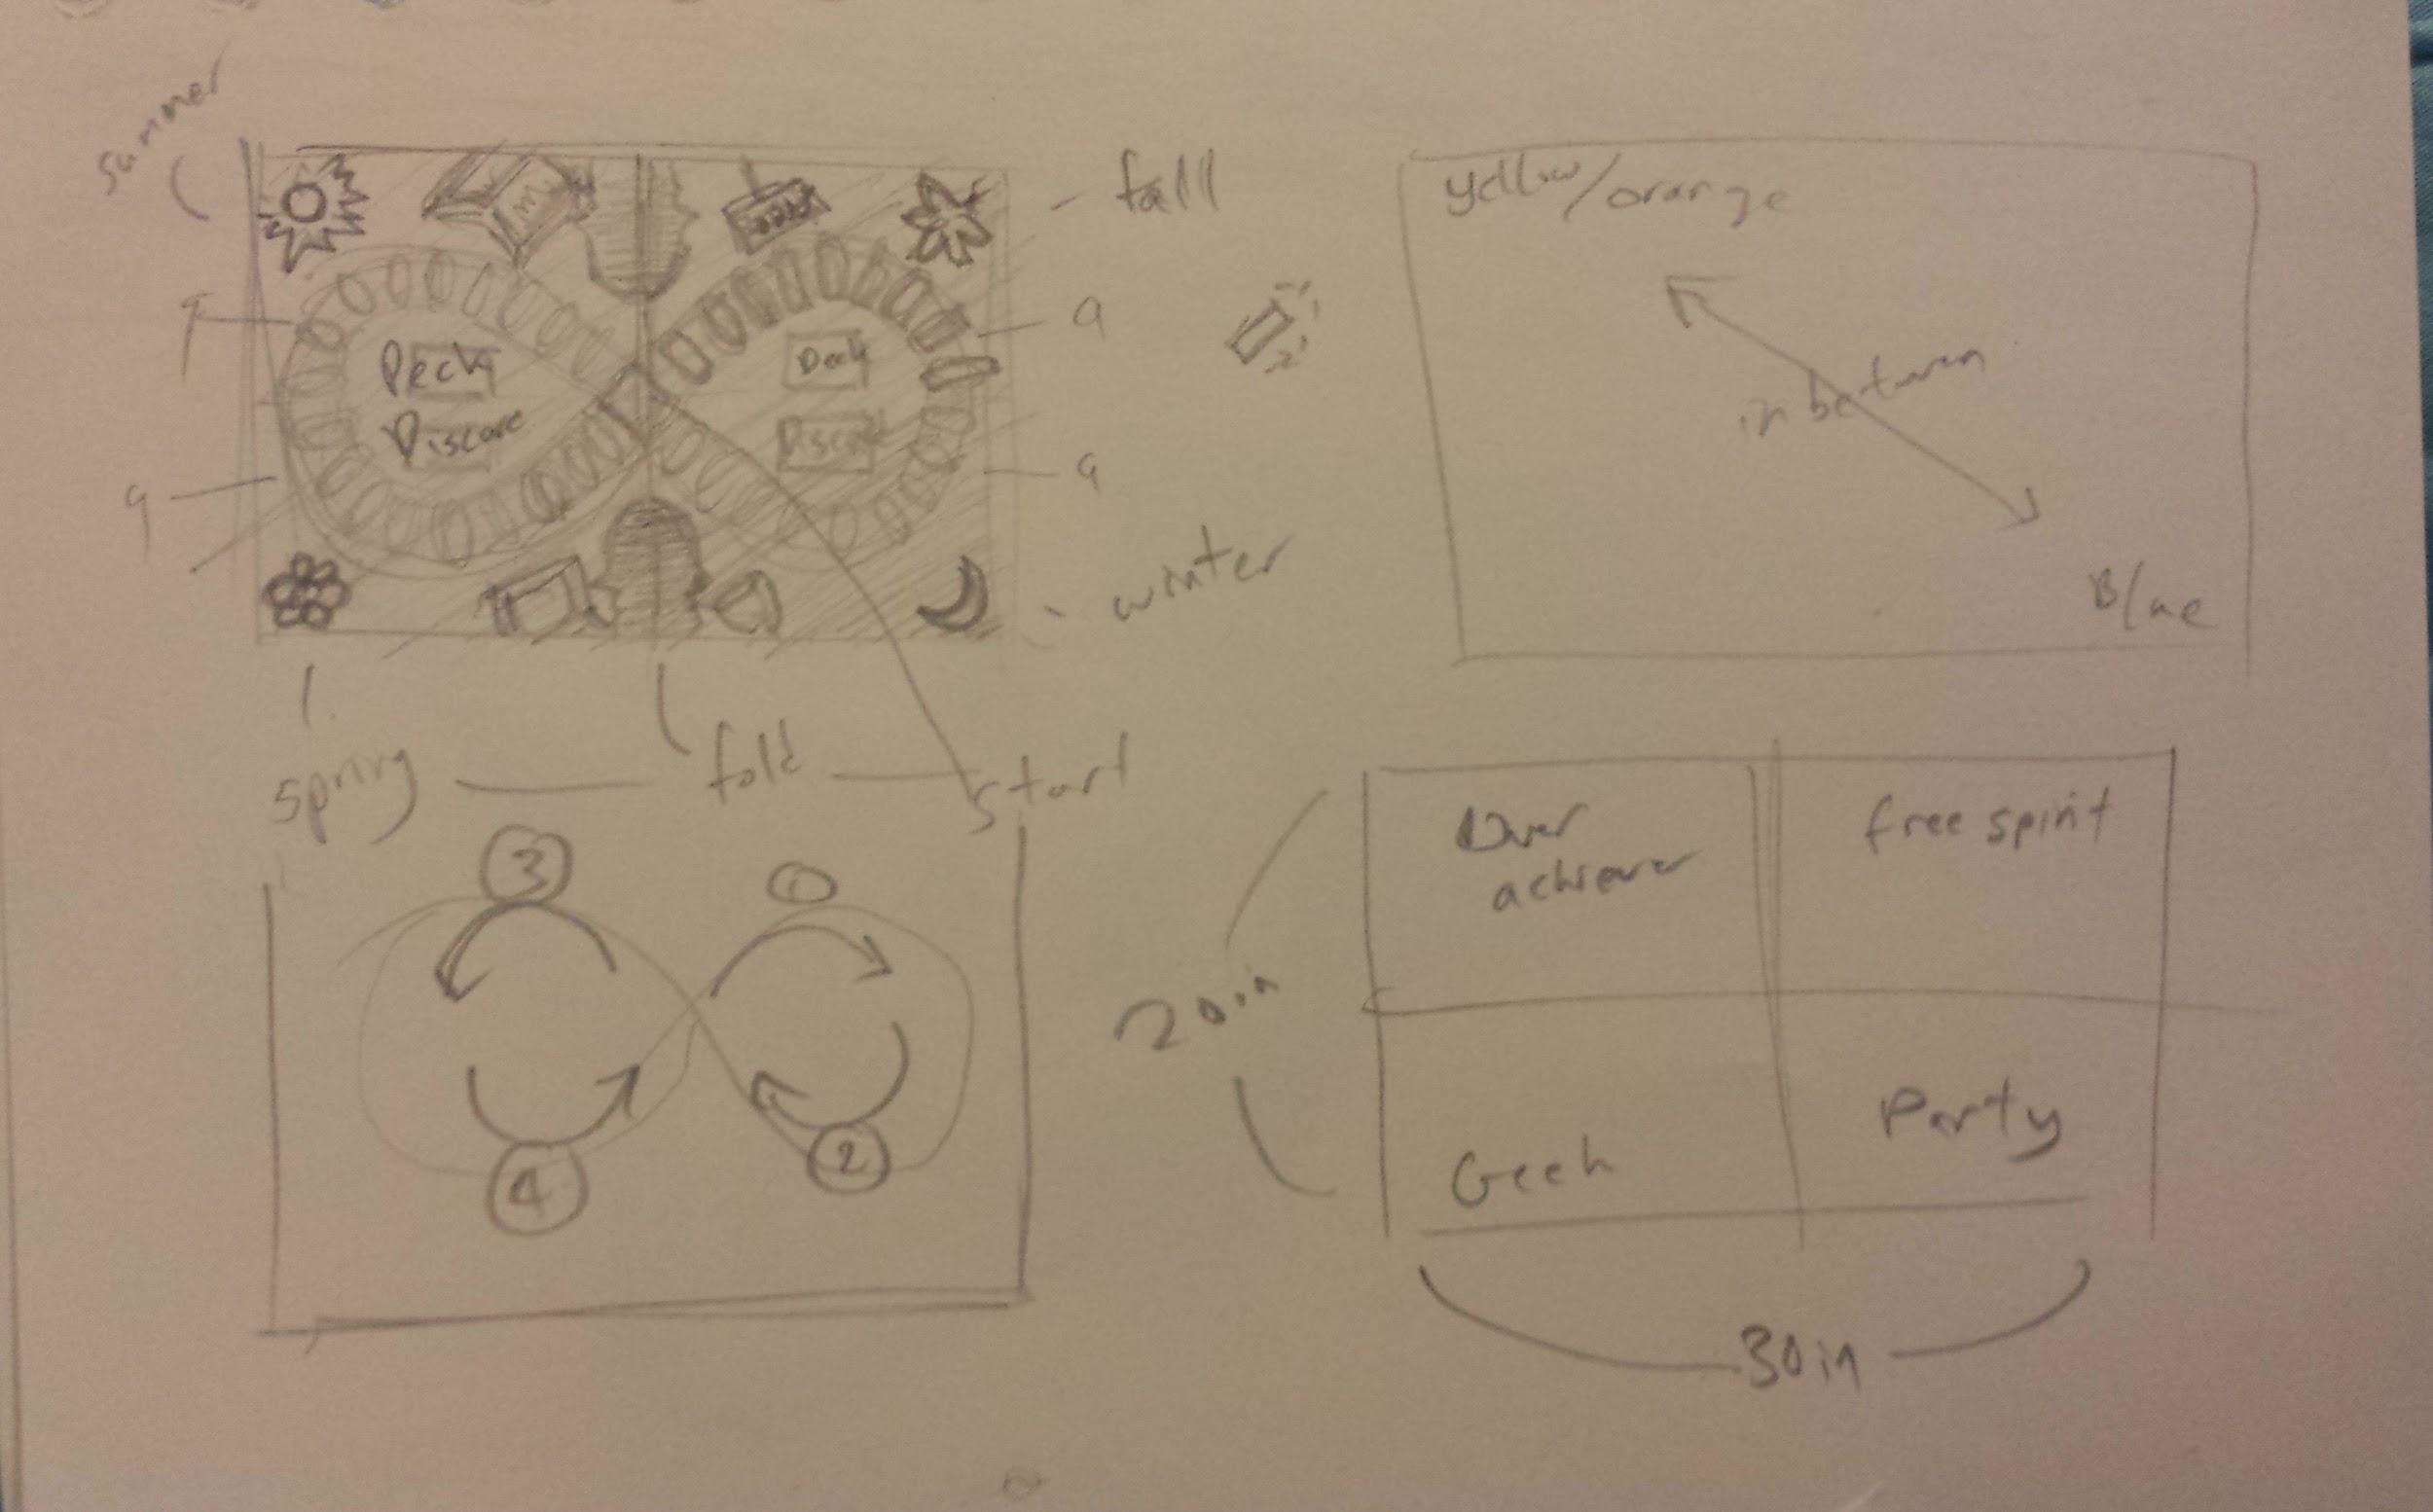 summer
fall
9
9
9
9
Deck
Discard
Deck
Discard
winter
spring
fold
start
yellow/orange
in between
Blue
3
1
4
2
Over
achiever
free spirit
Geek
Party
20in
30in